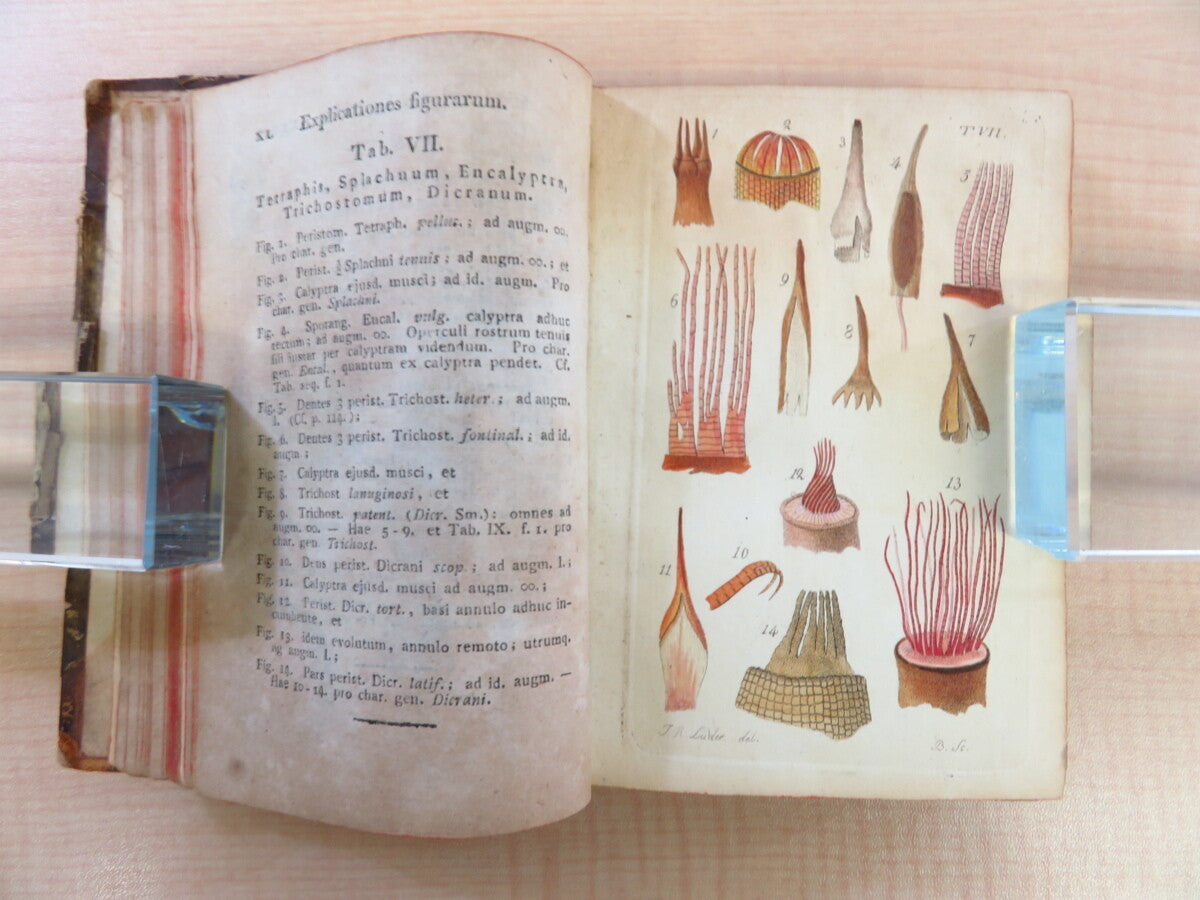 XL Explicationes figurarum.
Tab. VII.
Tetraphis, Splachnum, Encalypta,
Trichostomum, Dicranum.
Fig. 1. Peristom. Tetraph. pelluc.; ad augm. oo.
Pro char. gen.
Fig. 2. Perist. ½ Splachni tenuis; ad augm. oo.; et
Fig. 3. Calyptra ejusd. musci; ad id. augm. Pro
char. gen. Splachni.
Fig. 4. Sporang. Encal. vulg. calyptra adhuc
tectum; ad augm. oo. Operculi rostrum tenuis
fili instar per calyptram videndum. Pro char.
gen. Encal., quantum ex calyptra pendet. Cf.
Tab. seq. f. 1.
Fig. 5. Dentes 3 perist. Trichost. heter.; ad augm.
I. (Cf. p. 114.);
Fig. 6. Dentes 3 perist. Trichost. fontinal.; ad id.
augm.;
Fig. 7. Calyptra ejusd. musci, et
Fig. 8. Trichost lanuginosi, et
Fig. 9. Trichost. patent. (Dicr. Sm.): omnes ad
augm. oo. — Hae 5-9. et Tab. IX. f. 1. pro
char. gen. Trichost.
Fig. 10. Dens perist. Dicrani scop.; ad augm. I.;
Fig. 11. Calyptra ejusd. musci ad augm. oo.;
Fig. 12. Perist. Dicr. tort., basi annulo adhuc in-
cumbente, et
Fig. 13. idem evolutum, annulo remoto; utrumq.
ad augm. I.;
Fig. 14. Pars perist. Dicr. latif.; ad id. augm. —
Hae 10-14. pro char. gen. Dicrani.
T.VII.
1
2
3
4
5
6
9
8
7
12
13
11
10
14
del.
B. Sc.